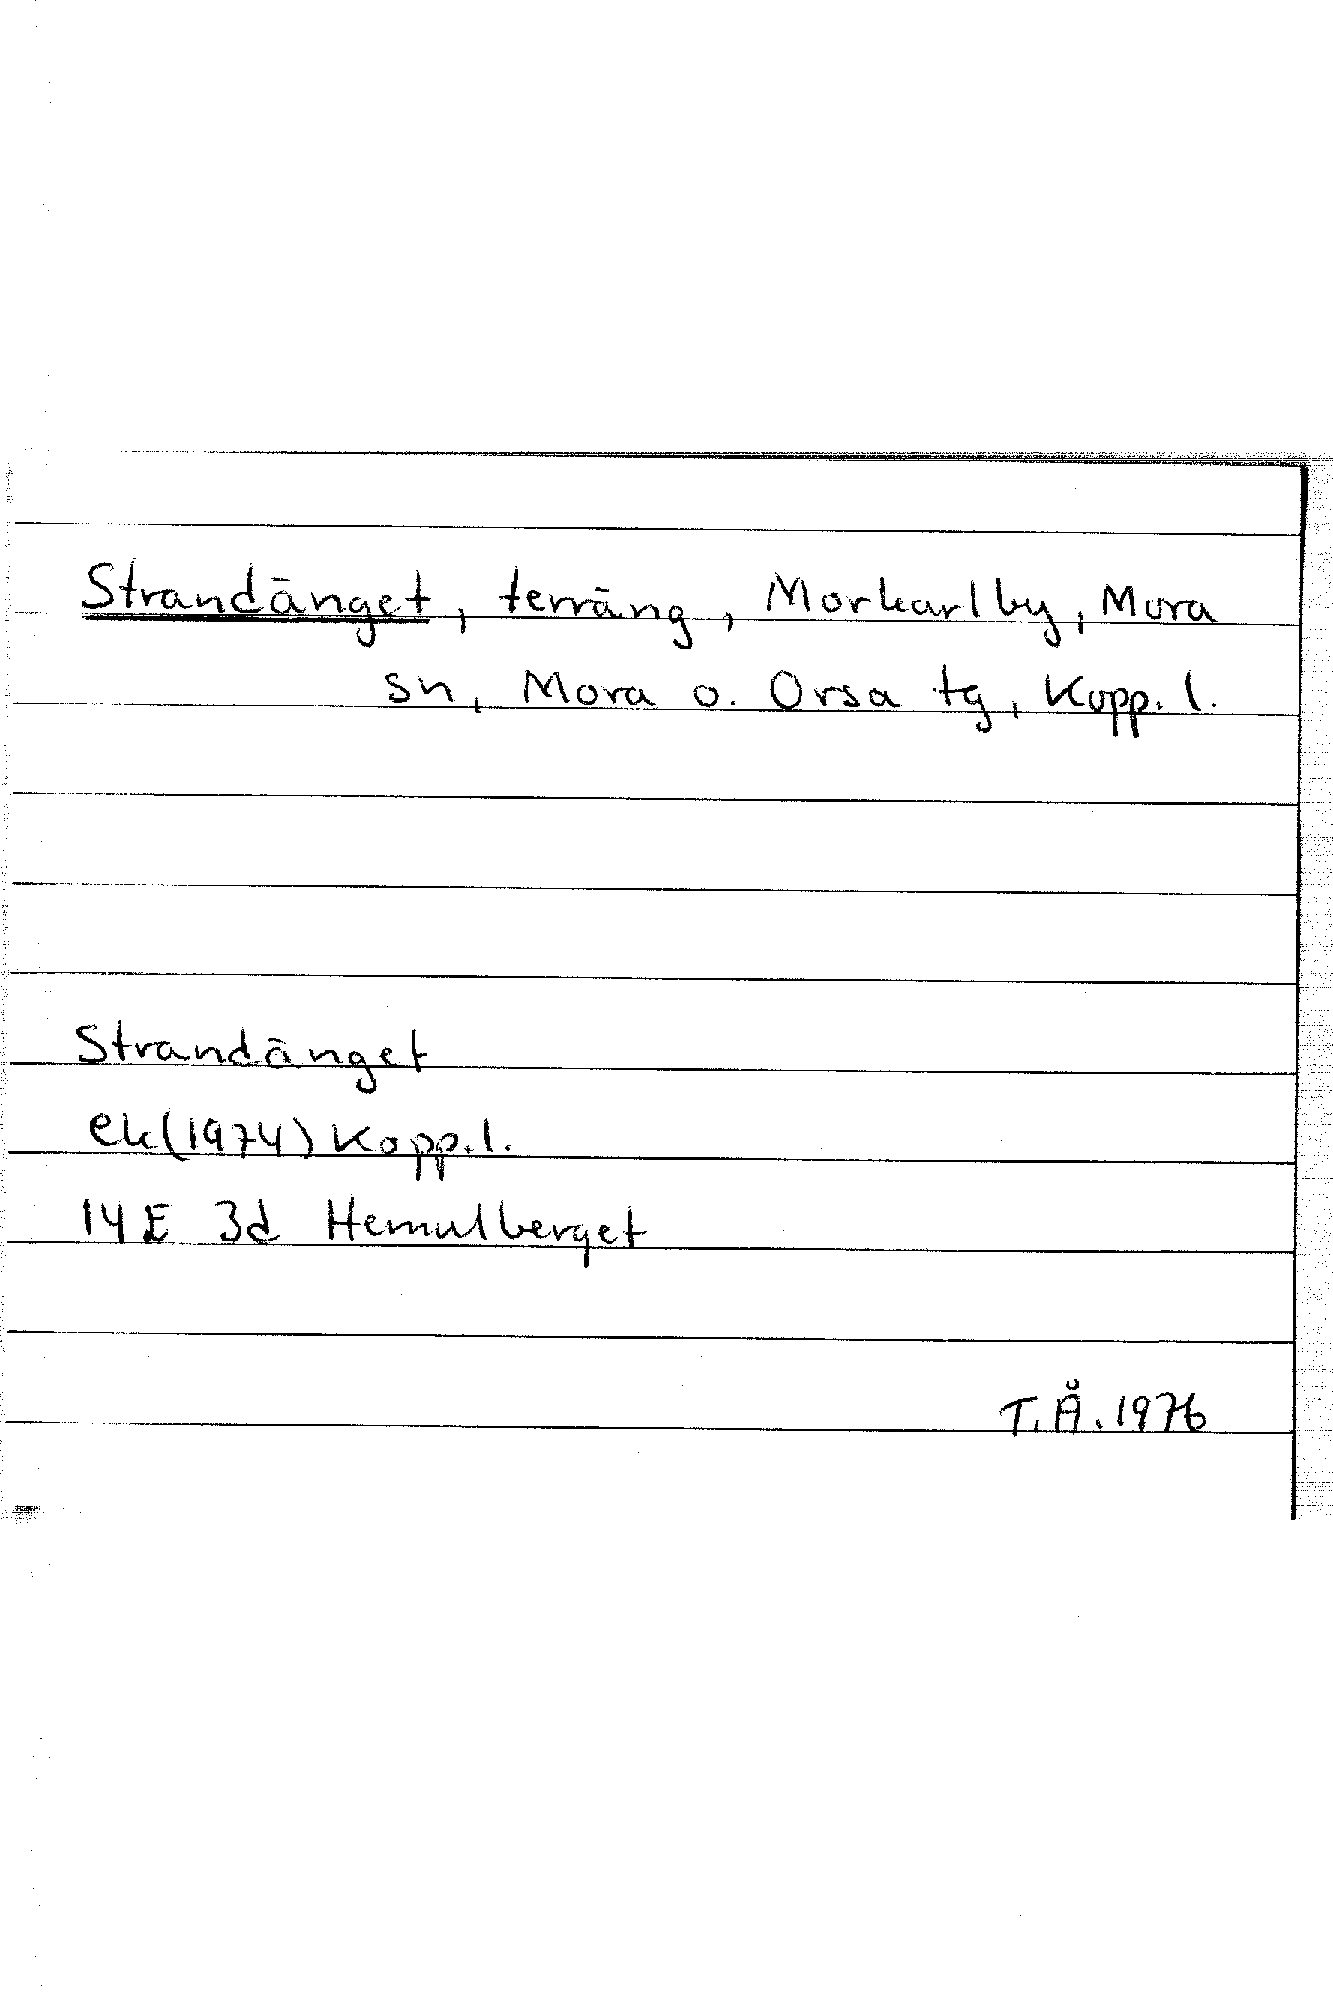 Strandänget, terräng, Morkarlby, Mora
sn, Mora o. Orsa tg, Kopp. l.
Strandänget
ek(1974) Kopp. l.
14E 3d Hemulberget
T.Å. 1976